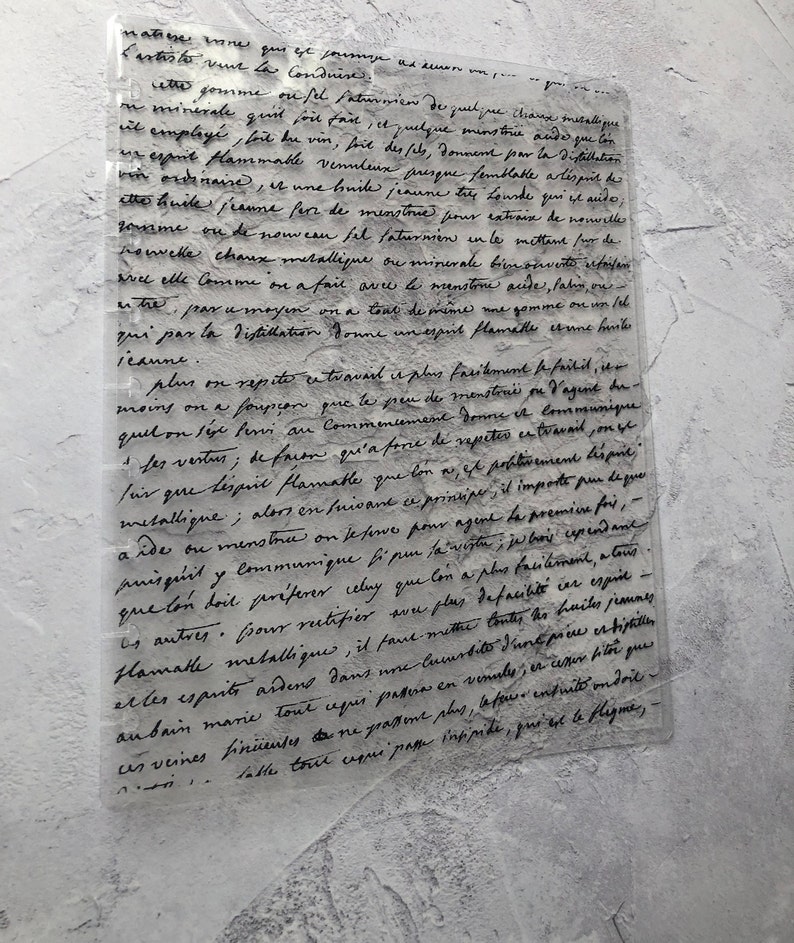 matiere qui est
L'artiste veut la Conduire.
cette gomme ou sel saturnien de quelque chaux metallique
ou minerale qu'il soit fait, et quelque menstrüe acide que l'on
ait employé, soit du vin, soit des sels, donnent par la distillation
un esprit flammable venuleux presque semblable a l'esprit de
vin ordinaire, et une huile jeaune tres Lourde qui est acide;
cette huile jeaune sert de menstrüe pour extraire de nouvelle
gomme ou de nouveau sel saturnien en le mettant sur de
nouvelle chaux metallique ou minerale bien ouverte et faisan
avec elle Comme on a fait avec le menstrue acide, salin, ou
autre. par ce moyen on a tout de même une gomme ou un sel
qui par la distillation donne un esprit flamable et une huile
jeaune.
plus on repete ce travail et plus facilement se fait il, et
moins on a soupçon que le peu de menstrüe ou d'agent du-
quel on s'est servi au Commencement donne et Communique
ses vertus; de façon qu'a force de repeter ce travail, on est
sur que l'esprit flamable que l'on a, est positivement l'esprit
metallique; alors en suivant ce principe, il importe peu de que
acide ou menstrue on se serve pour agent la premiere fois, -
puisqu'il y Communique si peu sa vertu; je crois cependant
que l'on doit préferer celuy que l'on a plus facilement, a tous
les autres. pour rectifier avec plus de facilité cet esprit -
flamable metallique, il faut mettre toutes les huiles jeaunes
et les esprits ardens dans une Cucurbite d'une piece et distiller
au bain marie tout ce qui passera en venules, et cesser sitôt que
ces veines sinüeuses ne passent plus, le feu. ensuite on doit -
tout ce qui passe insipide, qui est le flegme, -